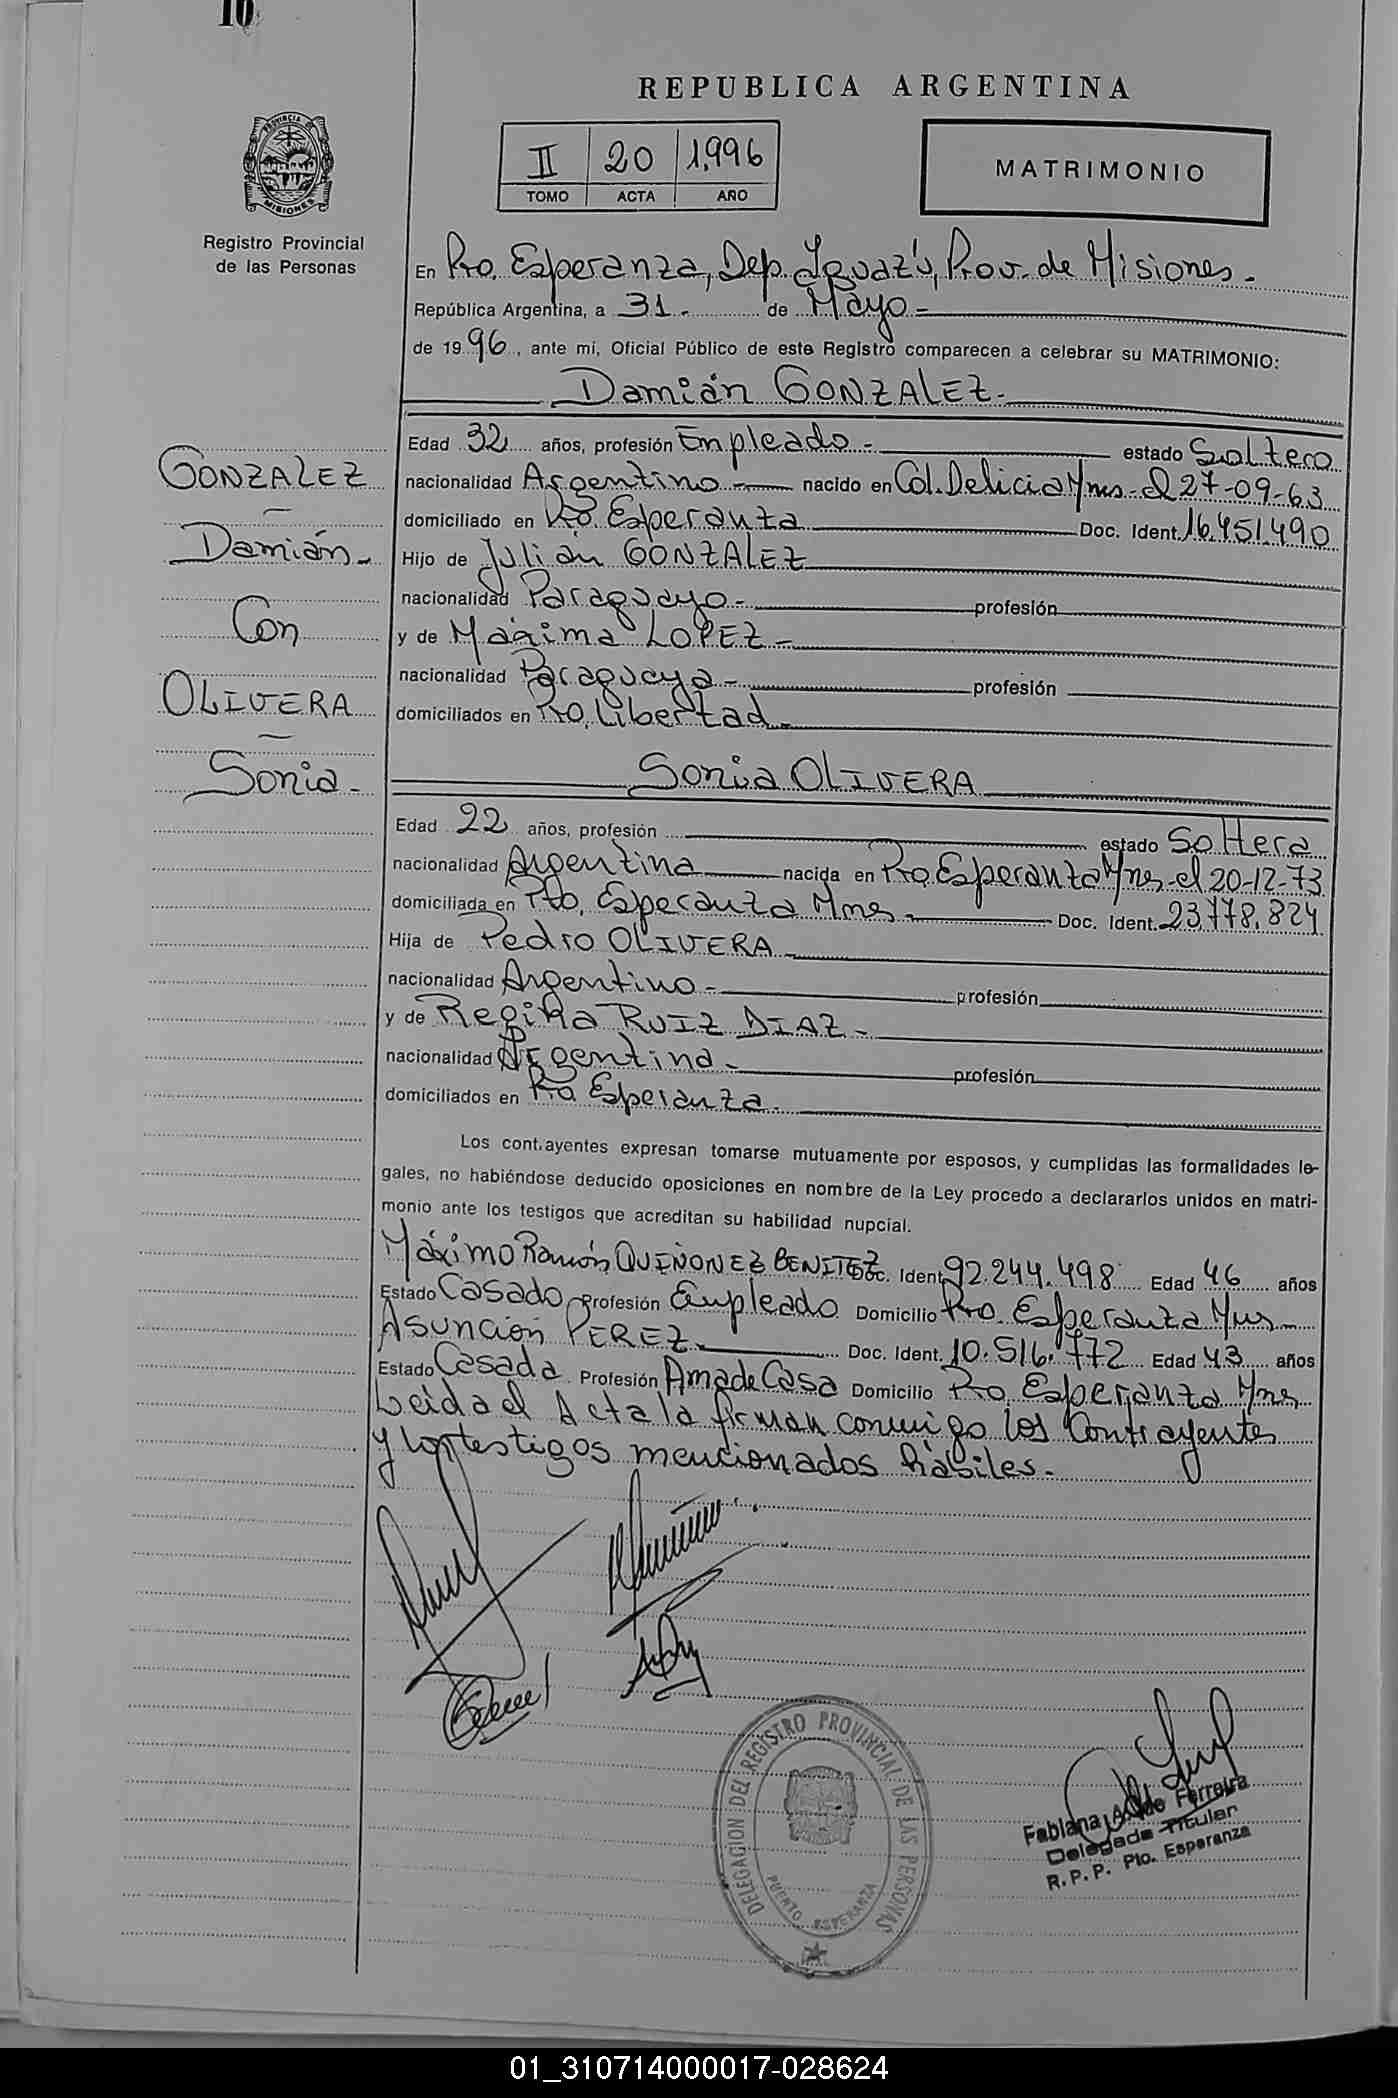 10
REPUBLICA ARGENTINA
PROVINCIA DE
MISIONES
Registro Provincial
de las Personas
II 20 1,996
TOMO ACTA AÑO
MATRIMONIO
En Pto. Esperanza, Dep. Iguazú, Prov. de Misiones.-
República Argentina, a 31.- de Mayo-
de 1996, ante mí, Oficial Público de este Registro comparecen a celebrar su MATRIMONIO:
Damián GONZALEZ.-
Edad 32 años, profesión Empleado.- estado Soltero
nacionalidad Argentino- nacido en Col. Delicia Mnes- el 27-09-63
domiciliado en Pto. Esperanza Doc. Ident. 16.451.490
Hijo de Julián GONZALEZ
nacionalidad Paraguayo- profesión
y de Máxima LOPEZ-
nacionalidad Paraguaya- profesión
domiciliados en Pto. Libertad-
GONZALEZ
Damián-
Con
OLIVERA
Sonia-
Sonia OLIVERA
Edad 22 años, profesión estado Soltera
nacionalidad Argentina nacida en Pto. Esperanza Mnes- el 20-12-73
domiciliada en Pto. Esperanza Mnes- Doc. Ident. 23.778.824
Hija de Pedro OLIVERA-
nacionalidad Argentino- profesión
y de Regina RUIZ DIAZ-
nacionalidad Argentina- profesión
domiciliados en Pto Esperanza.
Los cont.ayentes expresan tomarse mutuamente por esposos, y cumplidas las formalidades le-
gales, no habiéndose deducido oposiciones en nombre de la Ley procedo a declararlos unidos en matri-
monio ante los testigos que acreditan su habilidad nupcial.
Máximo Ramón QUIÑONEZ BENITEZ Doc. Ident. 92.244.498 Edad 46 años
Estado Casado Profesión Empleado Domicilio Pto. Esperanza Mnes-
Asunción PEREZ Doc. Ident. 10.516.772 Edad 43 años
Estado Casada Profesión Ama de Casa Domicilio Pto. Esperanza Mnes
Leida el Acta la firman conmigo los Contrayentes
y los testigos mencionados hábiles.-
DELEGACION DEL REGISTRO PROVINCIAL DE LAS PERSONAS
PUERTO ESPERANZA
Fabiana Ferreira
Delegada Titular
R.P.P. Pto. Esperanza
01_310714000017-028624